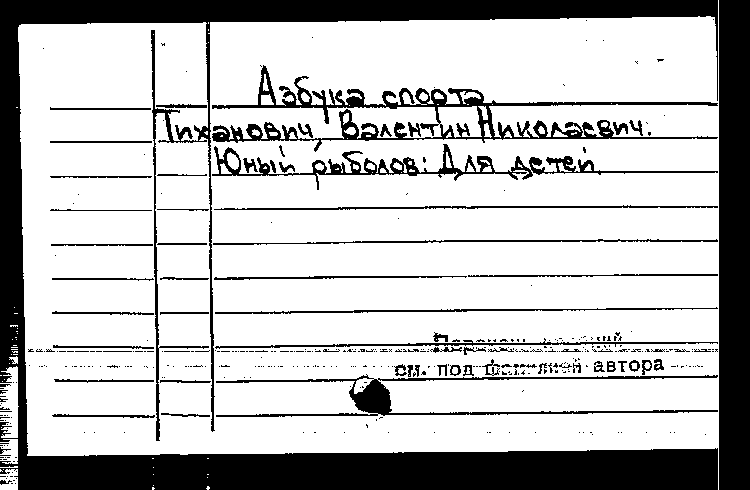 Азбука спорта.
Тиханович, Валентин Николаевич.
Юный рыболов: Для детей.
см. под фамилией автора